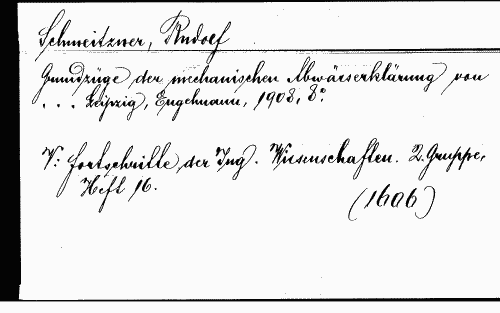 Schmeitzner, Rudolf
Grundzüge der mechanischen Abwässerklärung von
. . . Leipzig, Engelmann, 1908, 8º
V: Fortschritte der Ing. Wissenschaften. 2. Gruppe,
Heft 16.
(1606)